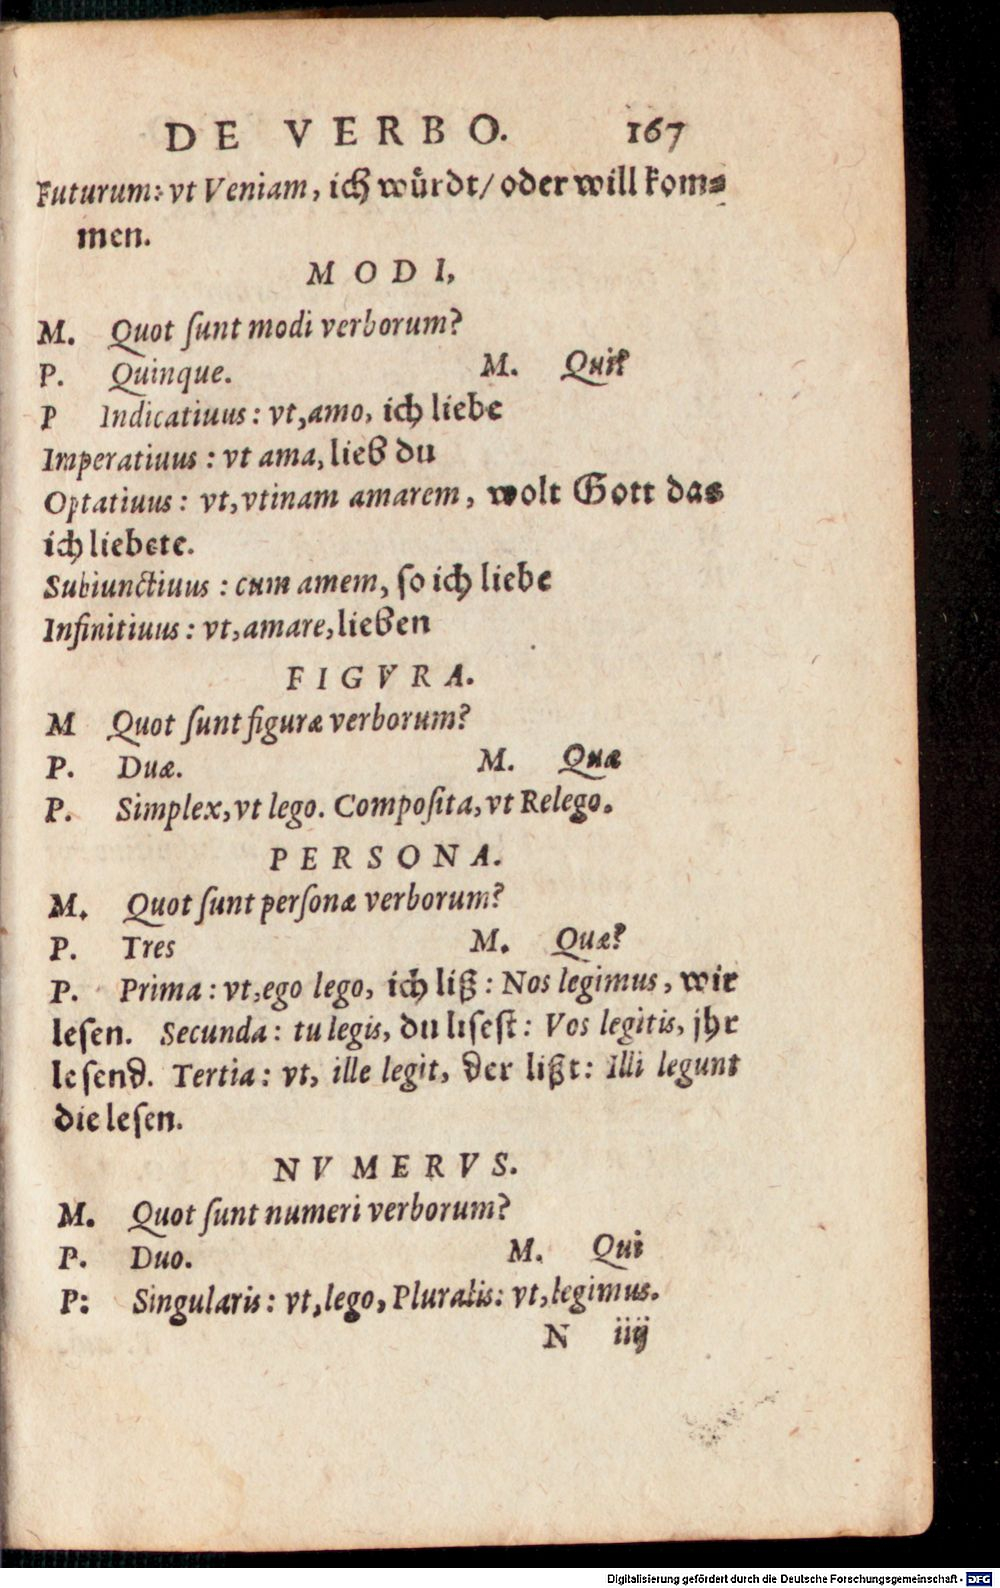 DE VERBO. 167
Futurum: vt Veniam, ich wuͤrdt/ oder will kom⸗
men.
MODI,
M. Quot ſunt modi verborum?
P. Quinque. M. Qui?
P Indicatiuus: vt, amo, ich liebe
Imperatiuus: vt ama, lieb du
Optatiuus: vt, vtinam amarem, wolt Gott das
ich liebete.
Subiunctiuus: cum amem, ſo ich liebe
Infinitiuus: vt, amare, lieben
FIGVRA.
M Quot ſunt figuræ verborum?
P. Duæ. M. Quæ
P. Simplex, vt lego. Compoſita, vt Relego.
PERSONA.
M. Quot ſunt perſonæ verborum?
P. Tres M. Quæ?
P. Prima: vt, ego lego, ich liß: Nos legimus, wir
leſen. Secunda: tu legis, du liſeſt: Vos legitis, jhr
leſend. Tertia: vt, ille legit, der lißt: Illi legunt
die leſen.
NVMERVS.
M. Quot ſunt numeri verborum?
P. Duo. M. Qui
P: Singularis: vt, lego, Pluralis: vt, legimus.
N iiij
Digitalisierung gefördert durch die Deutsche Forschungsgemeinschaft - DFG